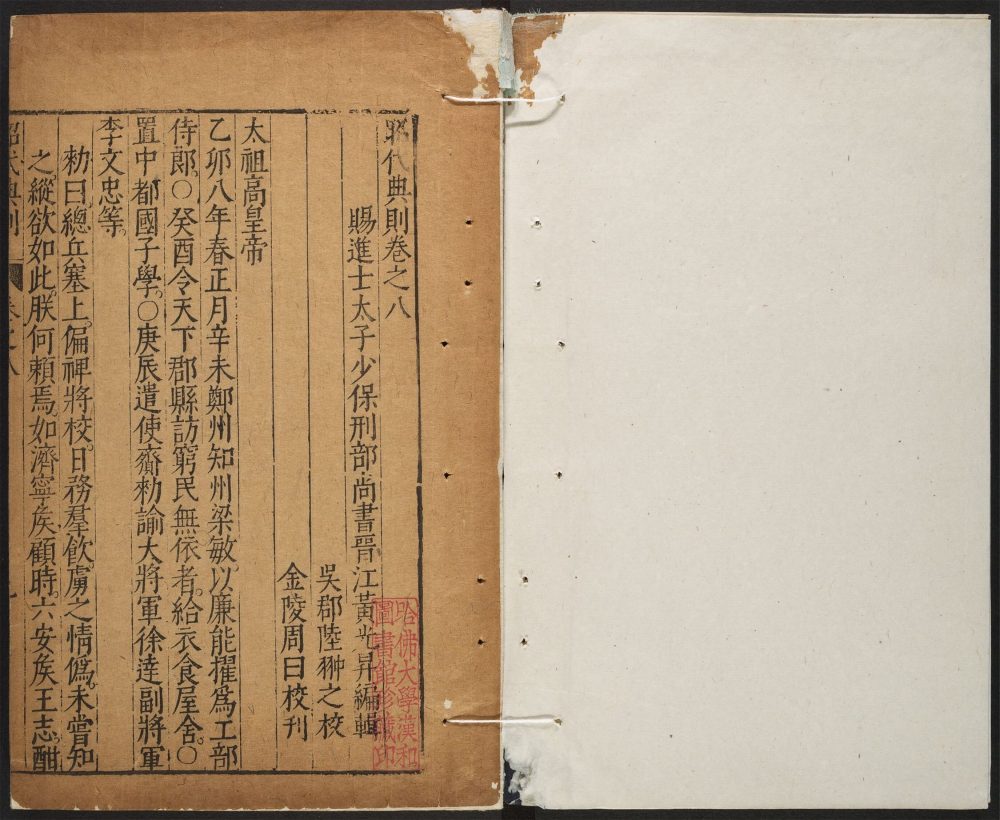 昭代典則卷之八
賜進士太子少保刑部尚書晉江黃光昇編輯
吳郡陸翀之校
金陵周曰校刊
太祖高皇帝
乙卯八年春正月辛未鄭州知州梁敏以廉能擢爲工部
侍郎○癸酉令天下郡縣訪窮民無依者給衣食屋舍○
置中都國子學○庚辰遣使齎勑諭大將軍徐達副將軍
李文忠等
勑曰總兵塞上偏裨將校日務羣飲虜之情僞未嘗知
之縱欲如此朕何賴焉如濟寧侯顧時六安侯王志酣
昭代典則 卷之八
哈佛大學漢和
圖書館珍藏印